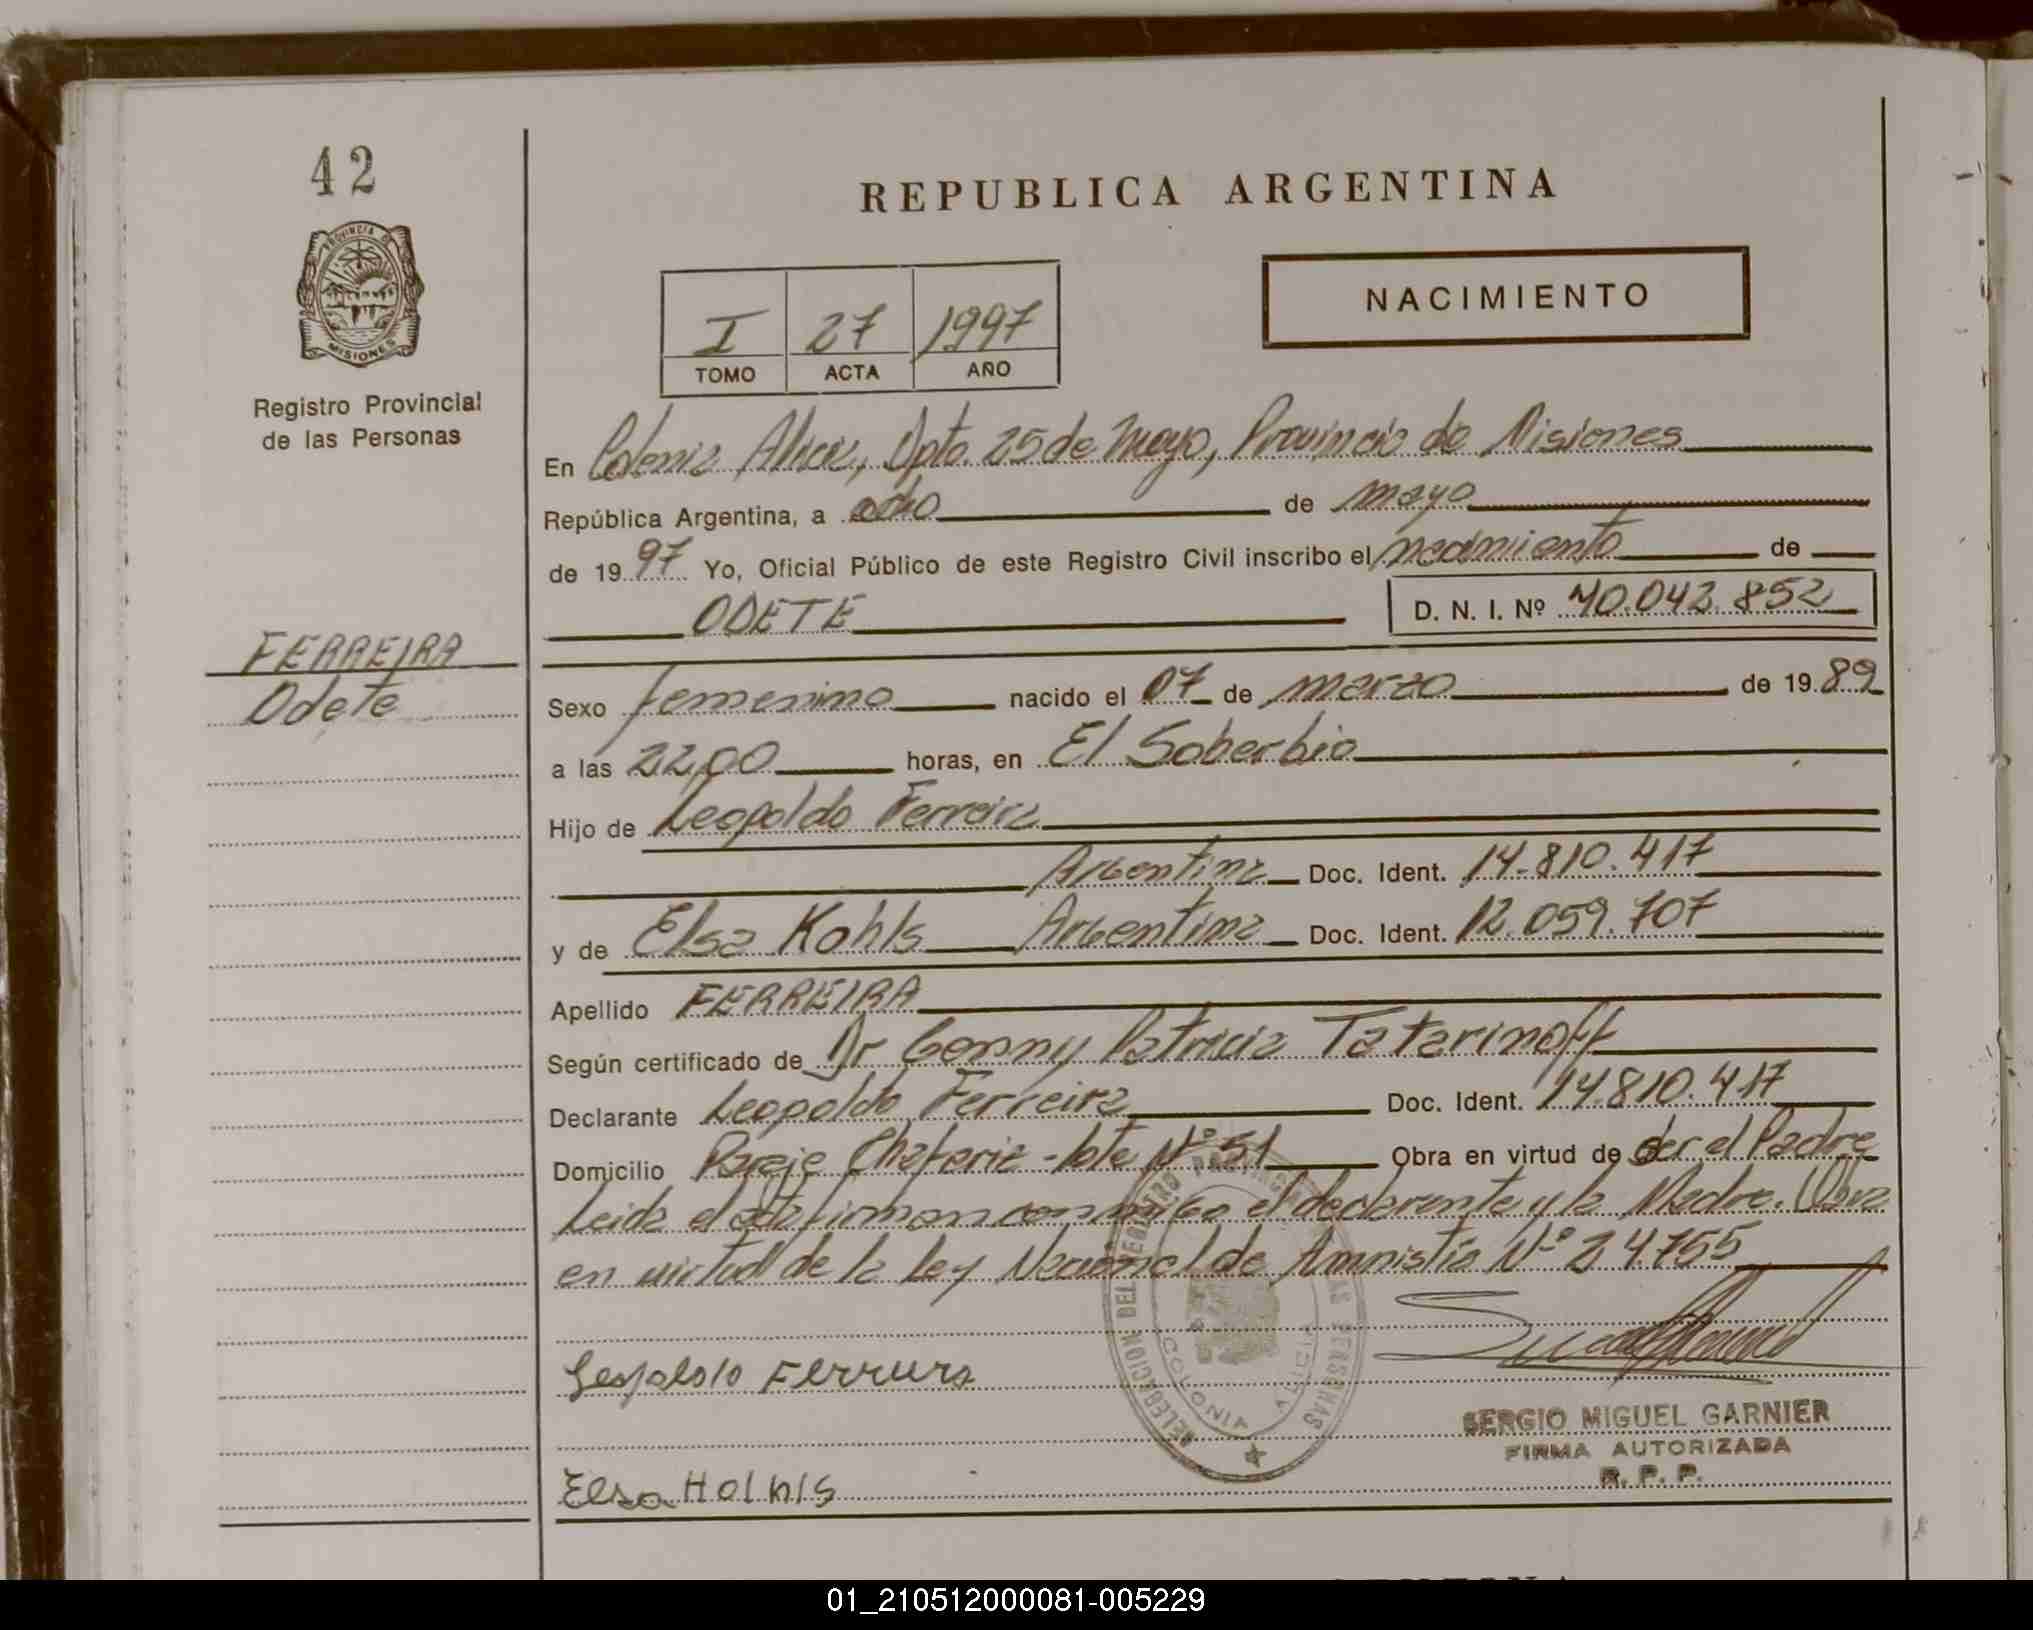 42
REPUBLICA ARGENTINA
PROVINCIA DE
MISIONES
Registro Provincial
de las Personas
NACIMIENTO
I 27 1997
TOMO ACTA AÑO
En Colonia Alicia, Dpto. 25 de Mayo, Provincia de Misiones
República Argentina, a ocho de mayo
de 1997 Yo, Oficial Público de este Registro Civil inscribo el nacimiento de
ODETE D. N. I. Nº 40.042.852
FERREIRA
Odete
Sexo femenino nacido el 07 de marzo de 1989
a las 22,00 horas, en El Soberbio
Hijo de Leopoldo Ferreira
Argentina Doc. Ident. 14.810.417
y de Elsa Kohls Argentina Doc. Ident. 12.059.707
Apellido FERREIRA
Según certificado de Dr Genny Patricia Tatarinoff
Declarante Leopoldo Ferreira Doc. Ident. 14.810.417
Domicilio Paraje Chafariz - lote Nº 51 Obra en virtud de ser el Padre
Leida el acta firman conmigo el declarante y la Madre. Obra
en virtud de la Ley Nacional de Amnistia Nº 24.755
DELEGACION DEL REGISTRO PROVINCIAL DE LAS PERSONAS
COLONIA ALICIA
Leopoldo Ferreira
SERGIO MIGUEL GARNIER
FIRMA AUTORIZADA
R. P. P.
Elsa Holhls
01_210512000081-005229